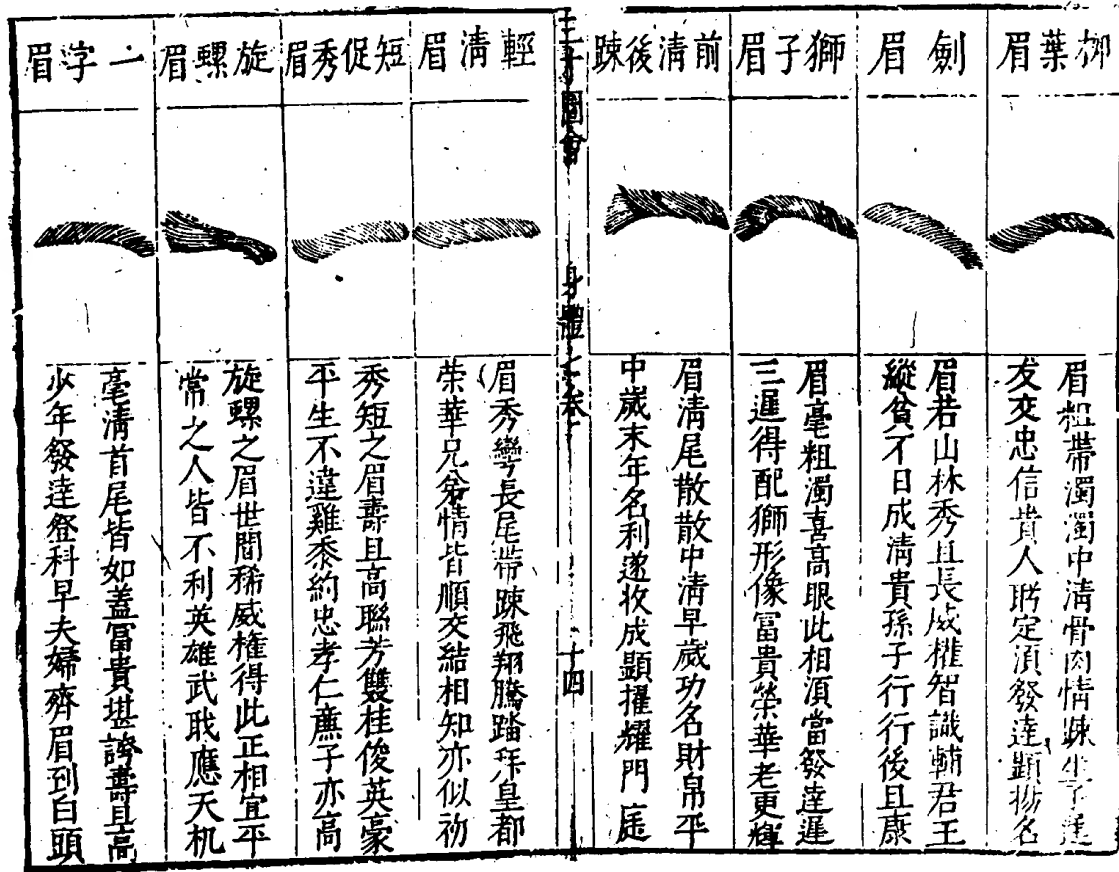 柳葉眉
眉粗帶濁濁中清骨肉情踈生子遲
友交忠信貴人盻定湏發達顯揚名
劍眉
眉若山林秀且長威權智識輔君王
縱貧不日成清貴孫子行行後且康
獅子眉
眉毫粗濁喜高眼此相湏當發達遲
三遲得配獅形像富貴榮華老更輝
前清後踈
眉清尾散散中清早歲功名財帛平
中歲末年名利遂收成顯擢耀門庭
三才圖會
身體
十四
輕清眉
眉秀彎長尾帶踈飛翔騰踏拜皇都
荣華兄弟情皆順交結相知亦似初
短促秀眉
秀短之眉壽且高聯芳雙桂俊英豪
平生不違雞黍約忠孝仁亷子亦高
旋螺眉
旋螺之眉世間稀威權得此正相宜平
常之人皆不利英雄武職應天机
一字眉
毫清首尾皆如盖富貴堪誇壽且高
少年發達登科早夫婦齊眉到白頭